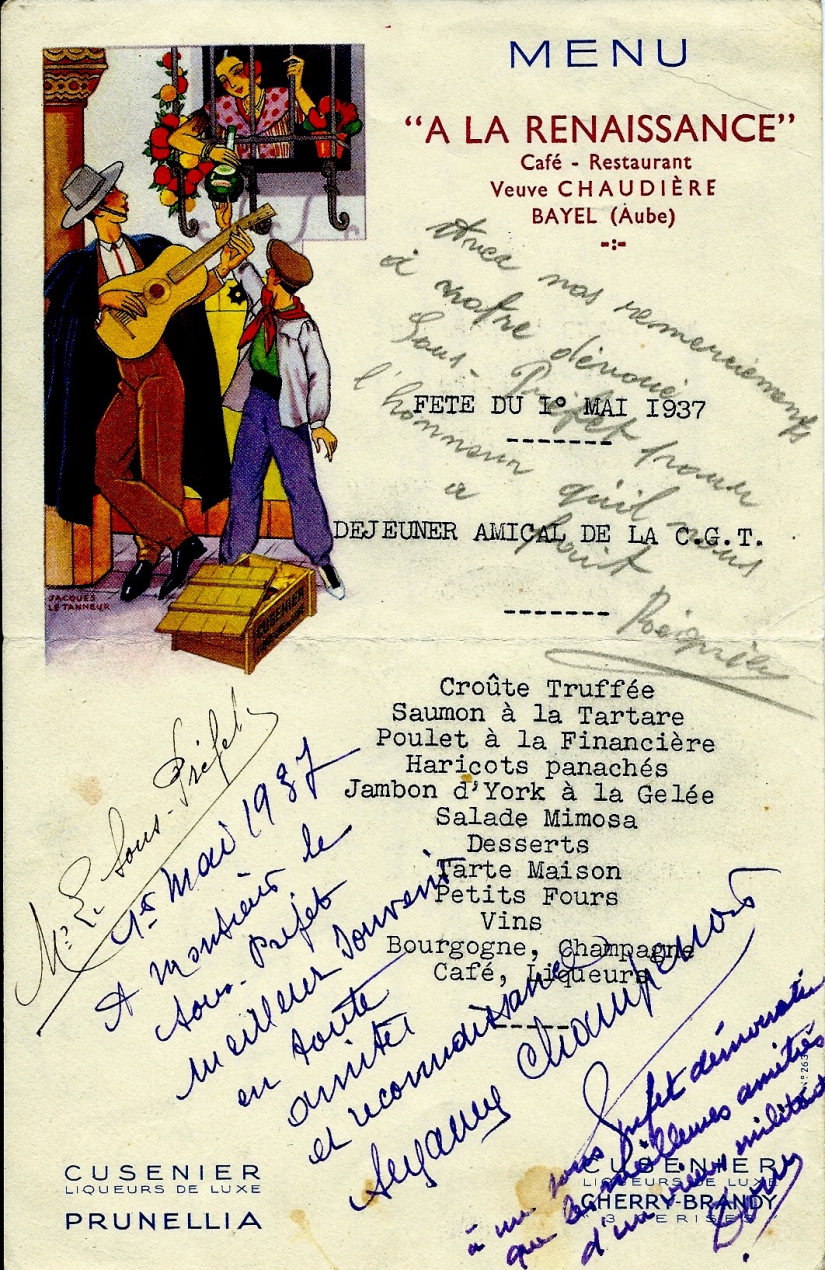 MENU
"A LA RENAISSANCE"
Café - Restaurant
Veuve CHAUDIÈRE
BAYEL (Aube)
-:-
Avec nos remerciements
à notre dévoué
Sous-Préfet pour
l'honneur qu'il nous
a fait
FETE DU 1° MAI 1937
-------
DEJEUNER AMICAL DE LA C.G.T.
-------
JACQUES
LE TANNEUR
CUSENIER
Croûte Truffée
Saumon à la Tartare
Poulet à la Financière
Haricots panachés
Jambon d'York à la Gelée
Salade Mimosa
Desserts
Tarte Maison
Petits Fours
Vins
Bourgogne, Champagne
Café, Liqueurs
-----
Mr Le Sous-Préfet
1er Mai 1937
A monsieur le
sous-Préfet
meilleur souvenir
en toute
amitié
et reconnaissance
Champenois
à un sous Préfet démocrate
que les meilleures amitiés
d'un vieux militant
N° 263
CUSENIER
LIQUEURS DE LUXE
PRUNELLIA
CUSENIER
LIQUEURS DE LUXE
CHERRY-BRANDY